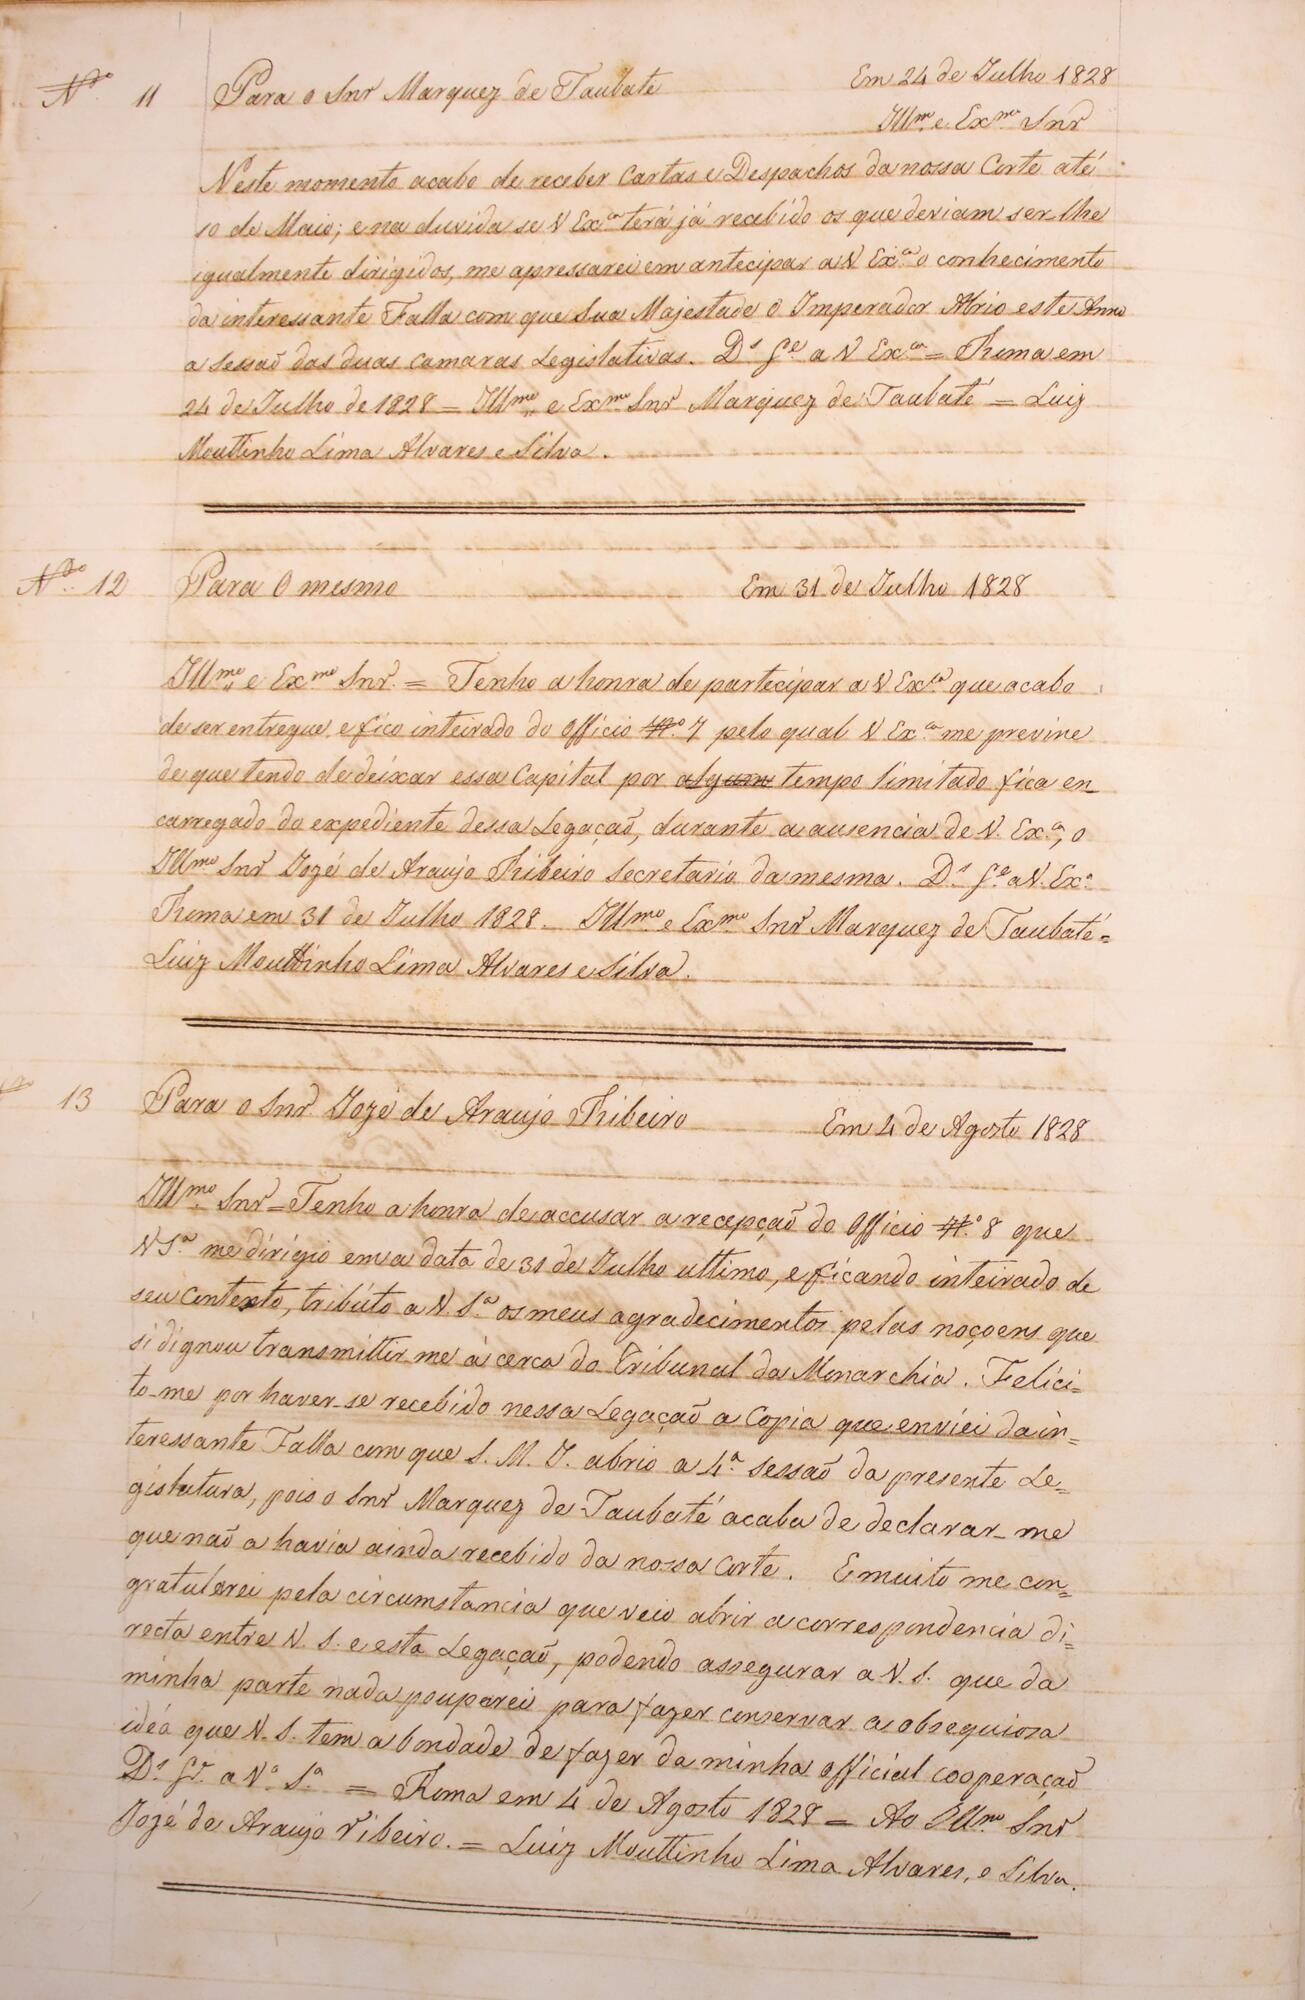 Nº 11 Para o Snr Marquez de Taubate Em 24 de Julho 1828
Illmo e Exmo Snr
Neste momento acabo de receber Cartas e Despachos da nossa Corte até
10 de Maio; e na duvida se V Exca terá já recebido os que deviam ser-lhe
igualmente dirigidos, me apressarei em antecipar a V Exca o conhecimento
da interessante Falla com que Sua Majestade O Imperador Abrio este Anno
a sessaõ das duas camaras Legislativas. Ds Ge a V Exca = Roma em
24 de Julho de 1828 = Illmo e Exmo Snr Marquez de Taubaté = Luiz
Mouttinho Lima Alvares e Silva.
Nº 12 Para O mesmo Em 31 de Julho 1828
Illmo e Exmo Snr. = Tenho a honra de partecipar a V Exca que acabo
de ser entregue e fico inteirado do Officio Nº 7 pelo qual V Exca me previne
de que tendo de deixar essa Capital por algum tempo limitado fica en_
carregado do expediente dessa Legaçaõ, durante a ausencia de V. Exca, o
Illmo Snr Jozé de Araujo Ribeiro Secretario da mesma. Ds Ge a V. Exa
Roma em 31 de Julho 1828. Illmo e Exmo Snr Marquez de Taubaté =
Luiz Mouttinho Lima Alvares e Silva.
13 Para o Snr Jozé de Araujo Ribeiro Em 4 de Agosto 1828
Illmo Snr = Tenho a honra de accusar a recepçaõ do Officio Nº 8 que
V Sa me dirigio em a data de 31 de Julho ultimo, e ficando inteirado de
seu contexto, tributo a V. Sa os meus agradecimentos pelas noçoens que
si dignou transmittir me à cerca do Tribunal da Monarchia. Felici_
to-me por haver-se recebido nessa Legaçaõ a Copia que enviei da in=
teressante Falla com que S. M. I. abrio a 4a sessaõ da presente Le=
gislatura, pois o Snr Marquez de Taubaté acaba de declarar-me
que naõ a havia ainda recebido da nossa Corte. E muito me con=
gratularei pela circumstancia que veio abrir a correspondencia di=
recta entre V. S. e esta Legaçaõ, podendo assegurar a V. S. que da
minha parte nada pouparei para fazer conservar a obsequiosa
idéa que V. S. tem a bondade de fazer da minha official cooperaçaõ
Ds Ge a Va Sa = Roma em 4 de Agosto 1828 = Ao Illmo Snr
Jozé de Araujo Ribeiro. = Luiz Mouttinho Lima Alvares, e Silva.